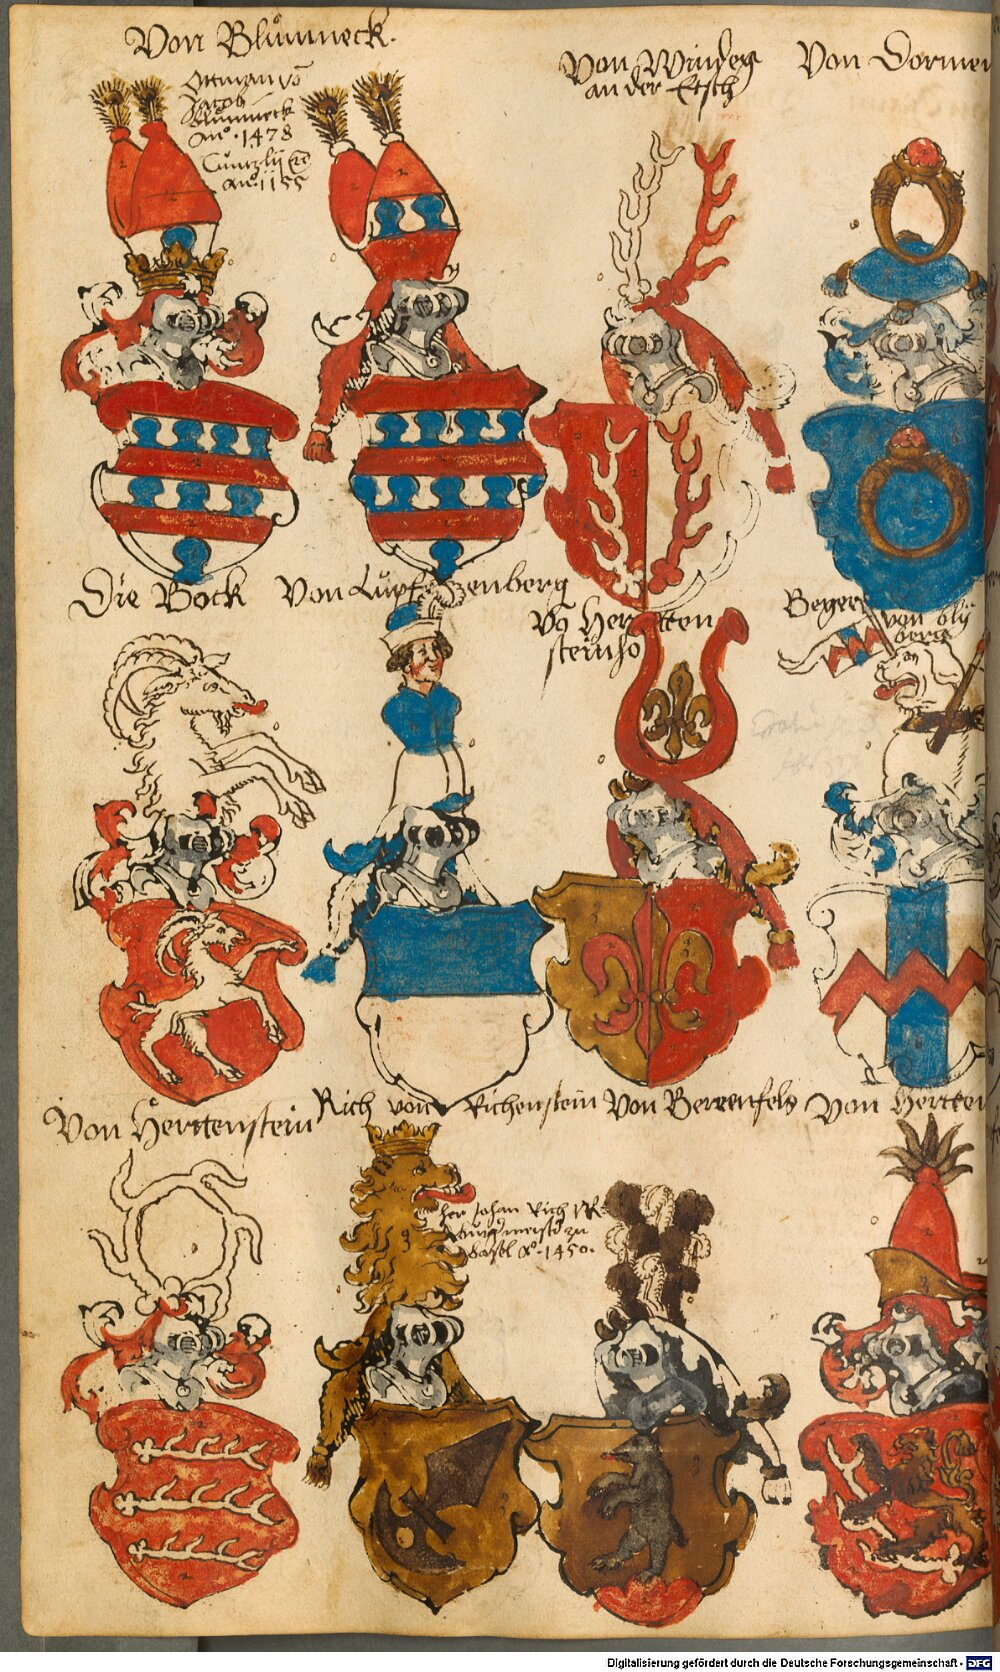 Von Blůmneck.
Ottman vō
Jacob
Blůmneck
Anº. 1478
Cůntzlij
anº. 1155
Von Windeg
an der Etsch
Von Dormen
Die Bock
Von Lupf
enberg
Vō Her
tten
stein
Beger
von Blij
berg
Von Hertenstein
Rich von Richenstein
Von Berenfels
Von Herten
her Johan Rich
burgermeister zu
Basel Aº. 1450.
Digitalisierung gefördert durch die Deutsche Forschungsgemeinschaft - DFG